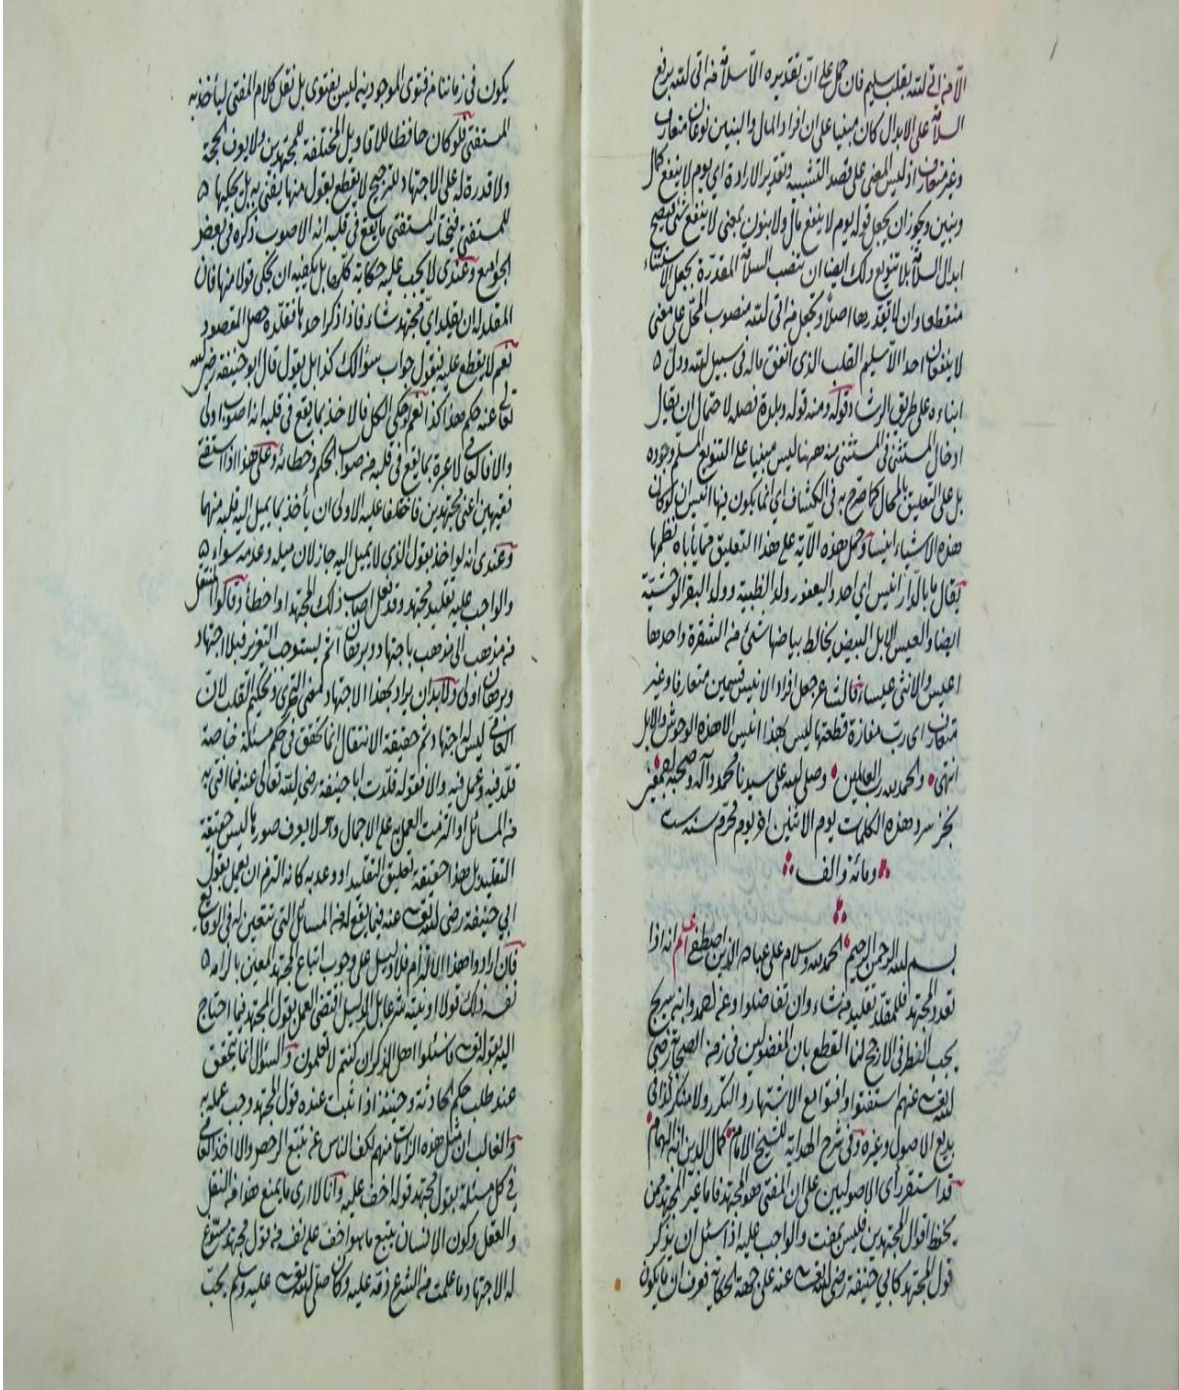 الا من اتى الله بقلب سليم فان حمل على ان تقديره الا سلامة من اتى الله برفع
السلامة على الابدال كان مبنيا على ان افراد المال والبنين نوعان متعارف
وغير متعارف اذ ليس المعنى على قصد التشبيه وتقدير الارادة اي يوم لا ينفع كمال
وبنين ويجوز ان يجعل قوله يوم لا ينفع مال ولا بنون بمعنى لا ينفع شئ فيصح
ابدال السلامة بلا تنويع ولك ايضا ان تنصب السلامة المقدرة بجعل الاستثناء
منقطعا وان لا تقدرها اصلا وتجعل من اتى الله منصوب المحل على معنى
لا ينفعان احدا الا سليم القلب الذي انفق ماله في سبيل الله ودل
ابناءه على طريق الرشاد قوله ومنه قوله وبلدة فصله لاحتمال ان يقال
ادخال المستثنى في المستثنى منه ههنا ليس مبنيا على التنويع المسلم وجوده
بل على التعليق بالمحال كما صرح به في الكشاف اي انما يكون فيها انيس ان لو كان
هذه الاشياء انيسا وحمل هذه الاية على هذا التعليق مما يأباه نظمها
يقال ما بالدار انيس اي احد واليعفور ولد الظبية وولد البقر الوحشية
ايضا والعيس الابل البيض يخالط بياضها شئ من الشقرة واحدها
اعيس والانثى عيساء فالشاعر جعل افراد الانيس قسمين متعارفا وغير
متعارف اي رب مفازة قطعتها ليس بهذا انيس الا هذه الوحوش والابل
انتهى والحمد لله رب العالمين وصلى الله على سيدنا محمد وآله وصحبه اجمعين
نجز سرد هذه الكلمات يوم الاثنين اخر يوم محرم سنة ست
ومائة والف
بسم الله الرحمن الرحيم الحمد لله وسلام على عباده الذين اصطفى اعلم انه اذا
تعدد المجتهد فللمقلد تقليد من شاء وان تفاضلوا وعن احمد وابن سريج
يجب النظر في الارجح لنا القطع بان المفضولين في زمن الصحابة رضي
الله تعالى عنهم استفتوا وافتوا مع الاشتهار والتكرر ولا منكر كذا في
بديع الاصول وغيره وفي شرح الهداية للشيخ الامام كمال الدين ابن الهمام
قد استقر رأى الاصوليين على ان المفتي هو المجتهد فاما غير المجتهد ممن
يحفظ اقوال المجتهدين فليس بمفت والواجب عليه اذا سئل ان يذكر
قول المجتهد كابي حنيفة رضي الله تعالى عنه على جهة الحكاية فعرف ان ما يكون
يكون في زماننا من فتوى الموجودين ليس بفتوى بل نقل كلام المفتي ليأخذ به
المستفتي فلو كان حافظا للاقاويل المختلفة للمجتهدين ولا يعرف الحجة
ولا قدرة له على الاجتهاد للترجيح لا يقطع بقول منها يفتي به بل يحكيها
للمستفتي فيختار المستفتي ما يقع في قلبه انه الاصوب ذكره في بعض
الجوامع وعندي لا يجب عليه حكاية كلها بل يكفيه ان يحكي قولا منها فان
المقلد له ان يقلد اي مجتهد شاء فاذا ذكر احدها فقلده حصل المقصود
نعم لا يقطع عليه فيقول جواب سؤالك كذا بل يقول قال ابو حنيفة رضي الله
تعالى عنه حكم هذا كذا نعم لو حكى الكل فالاخذ بما يقع في قلبه انه اصوب اولى
والا فالعامي لا عبرة بما يقع في قلبه من صواب الحكم وخطائه وعلى هذا اذا استفتى
فقيهين اعني مجتهدين فاختلفا عليه الاولى ان يأخذ بما يميل اليه قلبه منهما
وعندي انه لو اخذ بقول الذي لا يميل اليه جاز لان ميله وعدمه سواء
والواجب عليه تقليد مجتهد وقد فعل اصاب ذلك المجتهد او اخطأ وقالوا المنتقل
من مذهب الى مذهب باجتهاد وبرهان آثم يستوجب التعزير فبلا اجتهاد
وبرهان اولى ولا بد ان يراد بهذا الاجتهاد معنى التحري وتحكيم القلب لان
العامي ليس له اجتهاد ثم حقيقة الانتقال انما تحقق في حكم مسئلة خاصة
قلد فيه وعمل فيه والا فقوله قلدت ابا حنيفة رضي الله تعالى عنه فيما افتى به
من المسائل او التزمت العمل به على الاجمال وهو لا يعرف صورها ليس حقيقة
التقليد بل هذا حقيقة تعليق التقليد او وعد به كانه التزم ان يعمل بقول
ابي حنيفة رضي الله تعالى عنه فيما يقع له من المسائل التي تتعين له في الوقائع
فان ارادوا هذا الالتزام فلا دليل على وجوب اتباع المجتهد المعين بالزامه
نفسه ذلك قولا او نية شرعا بل الدليل اقتضى العمل بقول المجتهد فيما احتاج
اليه بقوله تعالى فاسئلوا اهل الذكر ان كنتم لا تعلمون والسؤال انما يتحقق
عند طلب حكم الحادثة وحينئذ اذا ثبت عنده قول المجتهد وجب عمله به
والغالب ان مثل هذه الزامات منهم لكف الناس عن تتبع الرخص والا اخذ العامي
في كل مسئلة بقول مجتهد قوله اخف عليه وانا لا ادري ما يمنع هذا من النقل
والعقل وكون الانسان يتبع ما هو اخف على نفسه من قول مجتهد مسوغ
له الاجتهاد ما علمت من الشرع ذمه عليه وكان صلى الله تعالى عليه وسلم يحب